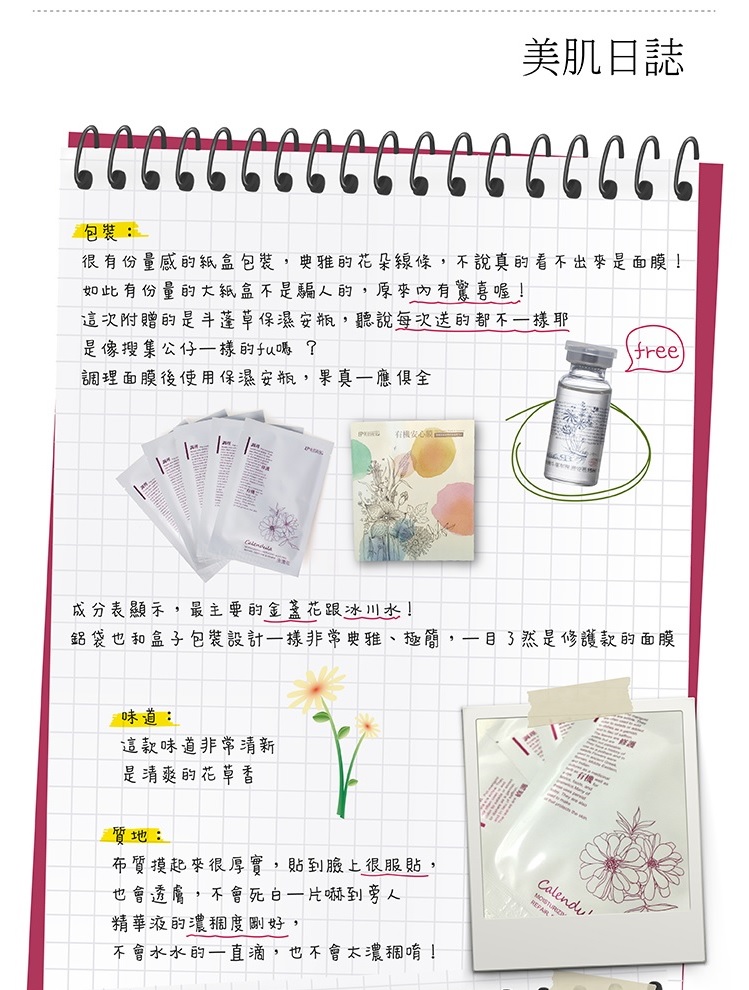 美肌日誌
包裝：
很有份量感的紙盒包裝，典雅的花朵線條，不說真的看不出來是面膜！
如此有份量的大紙盒不是騙人的，原來內有驚喜喔！
這次附贈的是斗蓬草保濕安瓶，聽說每次送的都不一樣耶
是像搜集公仔一樣的fu嗎 ？
調理面膜後使用保濕安瓶，果真一應俱全
free
有機安心膜
Calendula
成分表顯示，最主要的金盞花跟冰川水！
鋁袋也和盒子包裝設計一樣非常典雅、極簡，一目了然是修護款的面膜
味道：
這款味道非常清新
是清爽的花草香
修護
有機
Calendul
質地：
布質摸起來很厚實，貼到臉上很服貼，
也會透膚，不會死白一片嚇到旁人
精華液的濃稠度剛好，
不會水水的一直滴，也不會太濃稠唷！